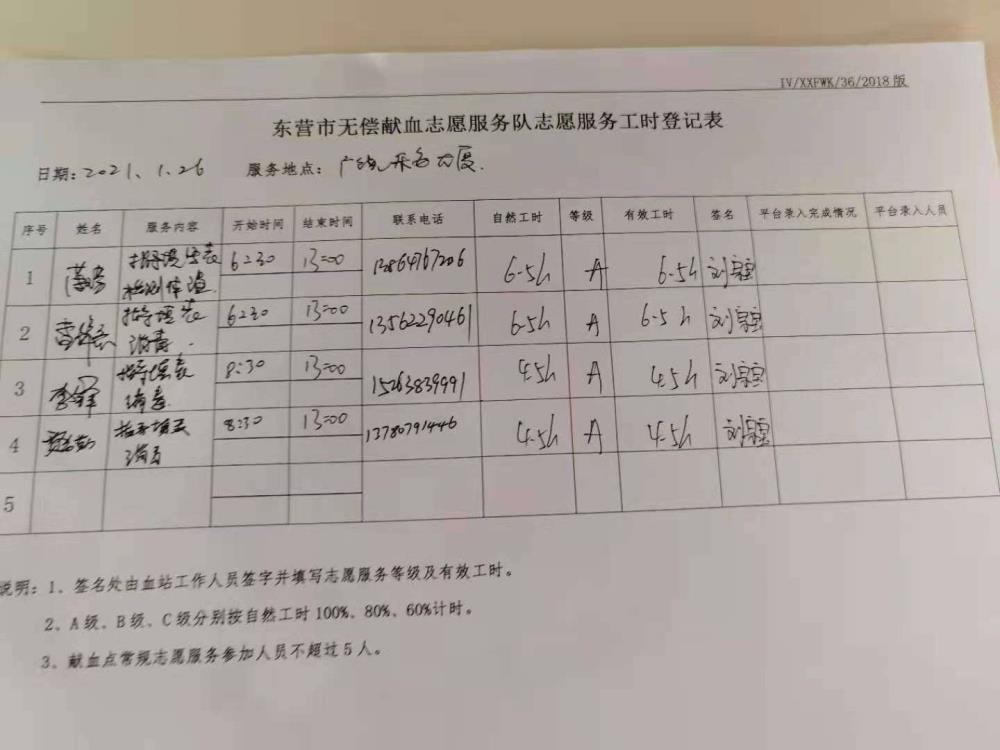 IV/XXFWK/36/2018版
东营市无偿献血志愿服务队志愿服务工时登记表
日期:2021、1.26 服务地点:广饶乐客大厦.
序号 姓名 服务内容 开始时间 结束时间 联系电话 自然工时 等级 有效工时 签名 平台录入完成情况 平台录入人员
1 指导填写表 6:30 13:00 6.5h A 6.5h
检测体温.
2 指导填表 6:30 13:00 13562290461 6.5h A 6.5h
消毒.
3 指导填表 8:30 13:00 15263839991 4.5h A 4.5h
消毒.
4 指导填表 8:30 13:00 13780791446 4.5h A 4.5h
消毒
5
说明:1、签名处由血站工作人员签字并填写志愿服务等级及有效工时。
2、A级、B级、C级分别按自然工时100%、80%、60%计时。
3、献血点常规志愿服务参加人员不超过5人。